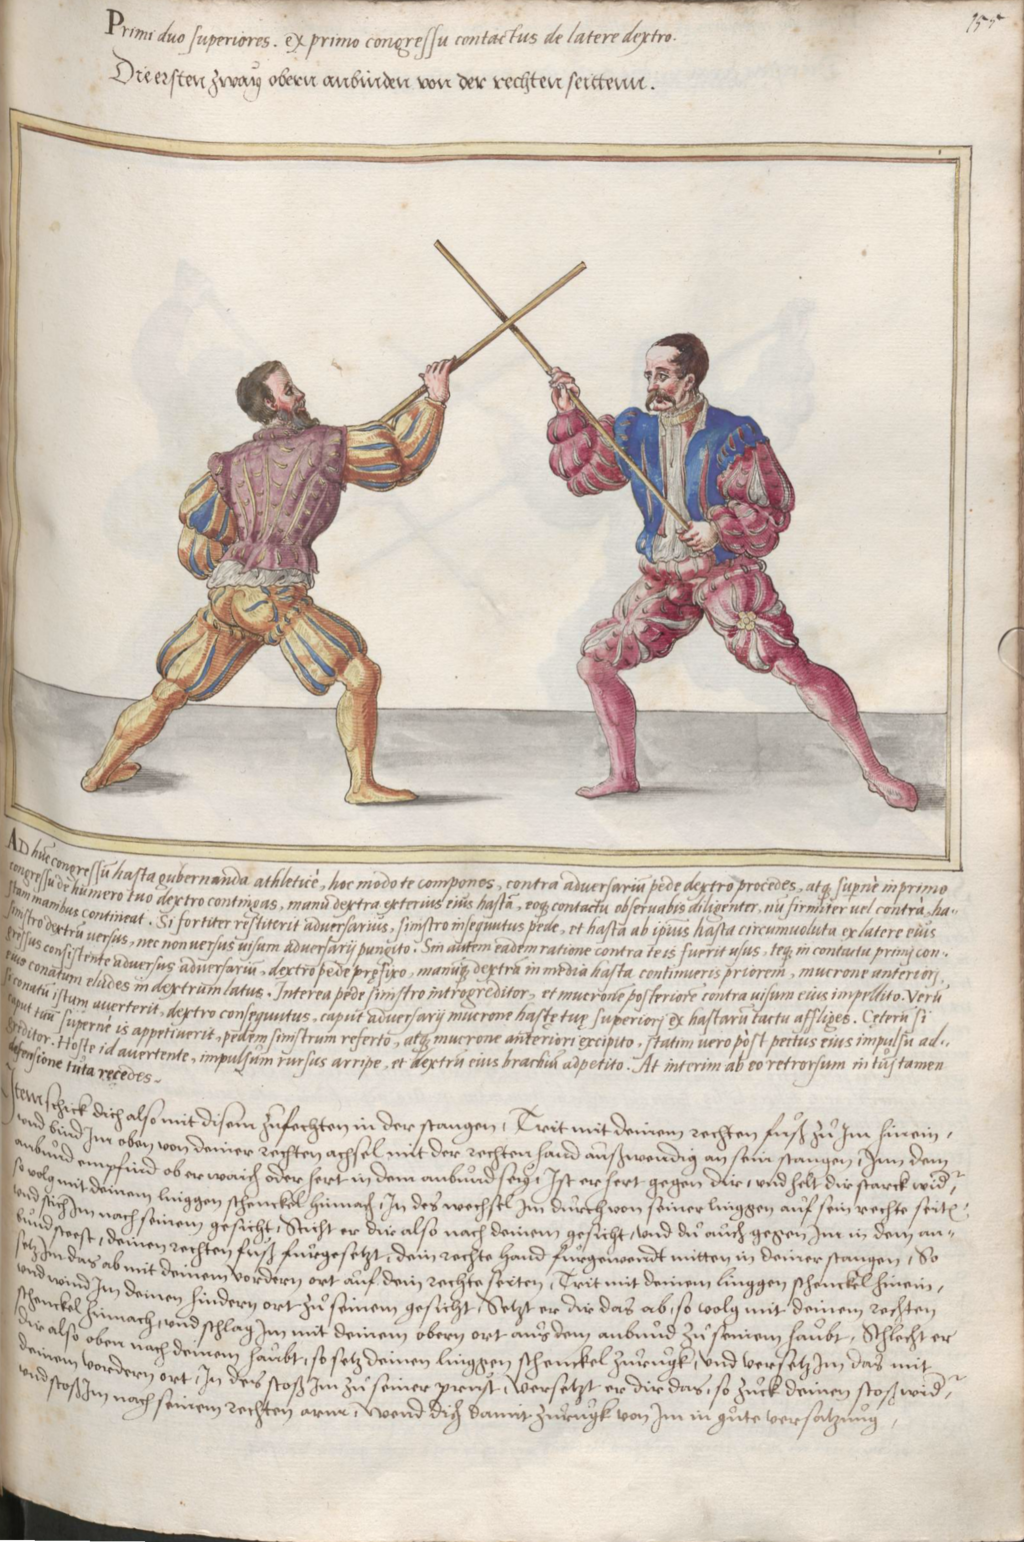 Primi duo superiores. ex primo congressu contactus de latere dextro.
Die ersten zway obern anbinden von der rechten seittenn.
AD hũc congressũ hasta gubernanda athleticè, hoc modo te compones, contra adversariũ pede dextro procedes, atq; supnè in primo
congressu de humero tuo dextro contingas, manu dextra exterius eius hastã, eoq; contactu observabis diligenter, nũ firmiter vel contrà ha-
stam manibus contineat. Si fortiter restiterit adversarius, sinistro insequutus pede, et hasta ab ipsius hasta circumvoluta ex latere eius
sinistro dextrũ versus, nec non versus visum adversarij pungito. Sin autem eadem ratione contra te is fuerit usus, teq; in contactu primi con-
gressus consistente adversus adversariũ, dextro pede præfixo, manuq; dextra in media hasta continueris priorem, mucrone anteriorj
eius conatum elides in dextrum latus. Interea pede sinistro introgreditor, et mucrone posteriore contra visum eius impellito. Verũ
si conatũ istum averterit, dextro consequutus, caput adversarij mucrone hastę tuę superiorj ex hastarũ tactu affliges. Ceterũ si
caput tuũ superne is appetiverit, pedem sinistrum referto, atq; mucrone anteriori excipito, statim vero pòst pectus eius impulsu ad-
greditor. Hoste id avertente, impulsum rursus arripe, et dextrũ eius brachiũ adpetito. At interim ab eo retrorsum in tũ tamen
defensione tuta recedes.
Item schick dich also mit disem zufechten in der stangen, Trit mit deinem rechten fuß zu Im hinein,
und bind Im oben von deiner rechten achsel mit der rechten hand außwendig an sein stangen, Inn dem
anbund empfind ob er waich oder hert in dem anbund seÿ, Ist er hert gegen dir, und helt dir starck wid,
so volg mit deinem linggen schenckel hinnach, In des wechsel Im durch von seiner linggen auf sein rechte seitē
und stich Im nach seinem gesicht, Sticht er dir also nach deinem gesicht, und du auch gegen Im in dem an-
bund steest, deinen rechten fuß furgesetzt, dein rechte hand furgewendt mitten in deiner stangen, So
setz Im das ab mit deinem vordern ort auf dein rechte seiten, Trit mit deinem linggen schenckel hinein,
und wind Im deinen hindern ort zu seinem gesicht, Setzt er dir das ab, so volg mit deinem rechten
schenckel hinnach, und schlag Im mit deinem obern ort aus dem anbund zu seinem haubt, Schlecht er
dir also oben nach deinem haubt, so setz deinen linggen schenckel zurugk, und versetz Im das mit
deinem vordern ort, In des stoß Im zu seiner prust, Versetzt er dir das, so zuck deinen stoß wid,
und stoß Im nach seinem rechten arm, Wend dich damit zurugk von Im in gute versatzung,